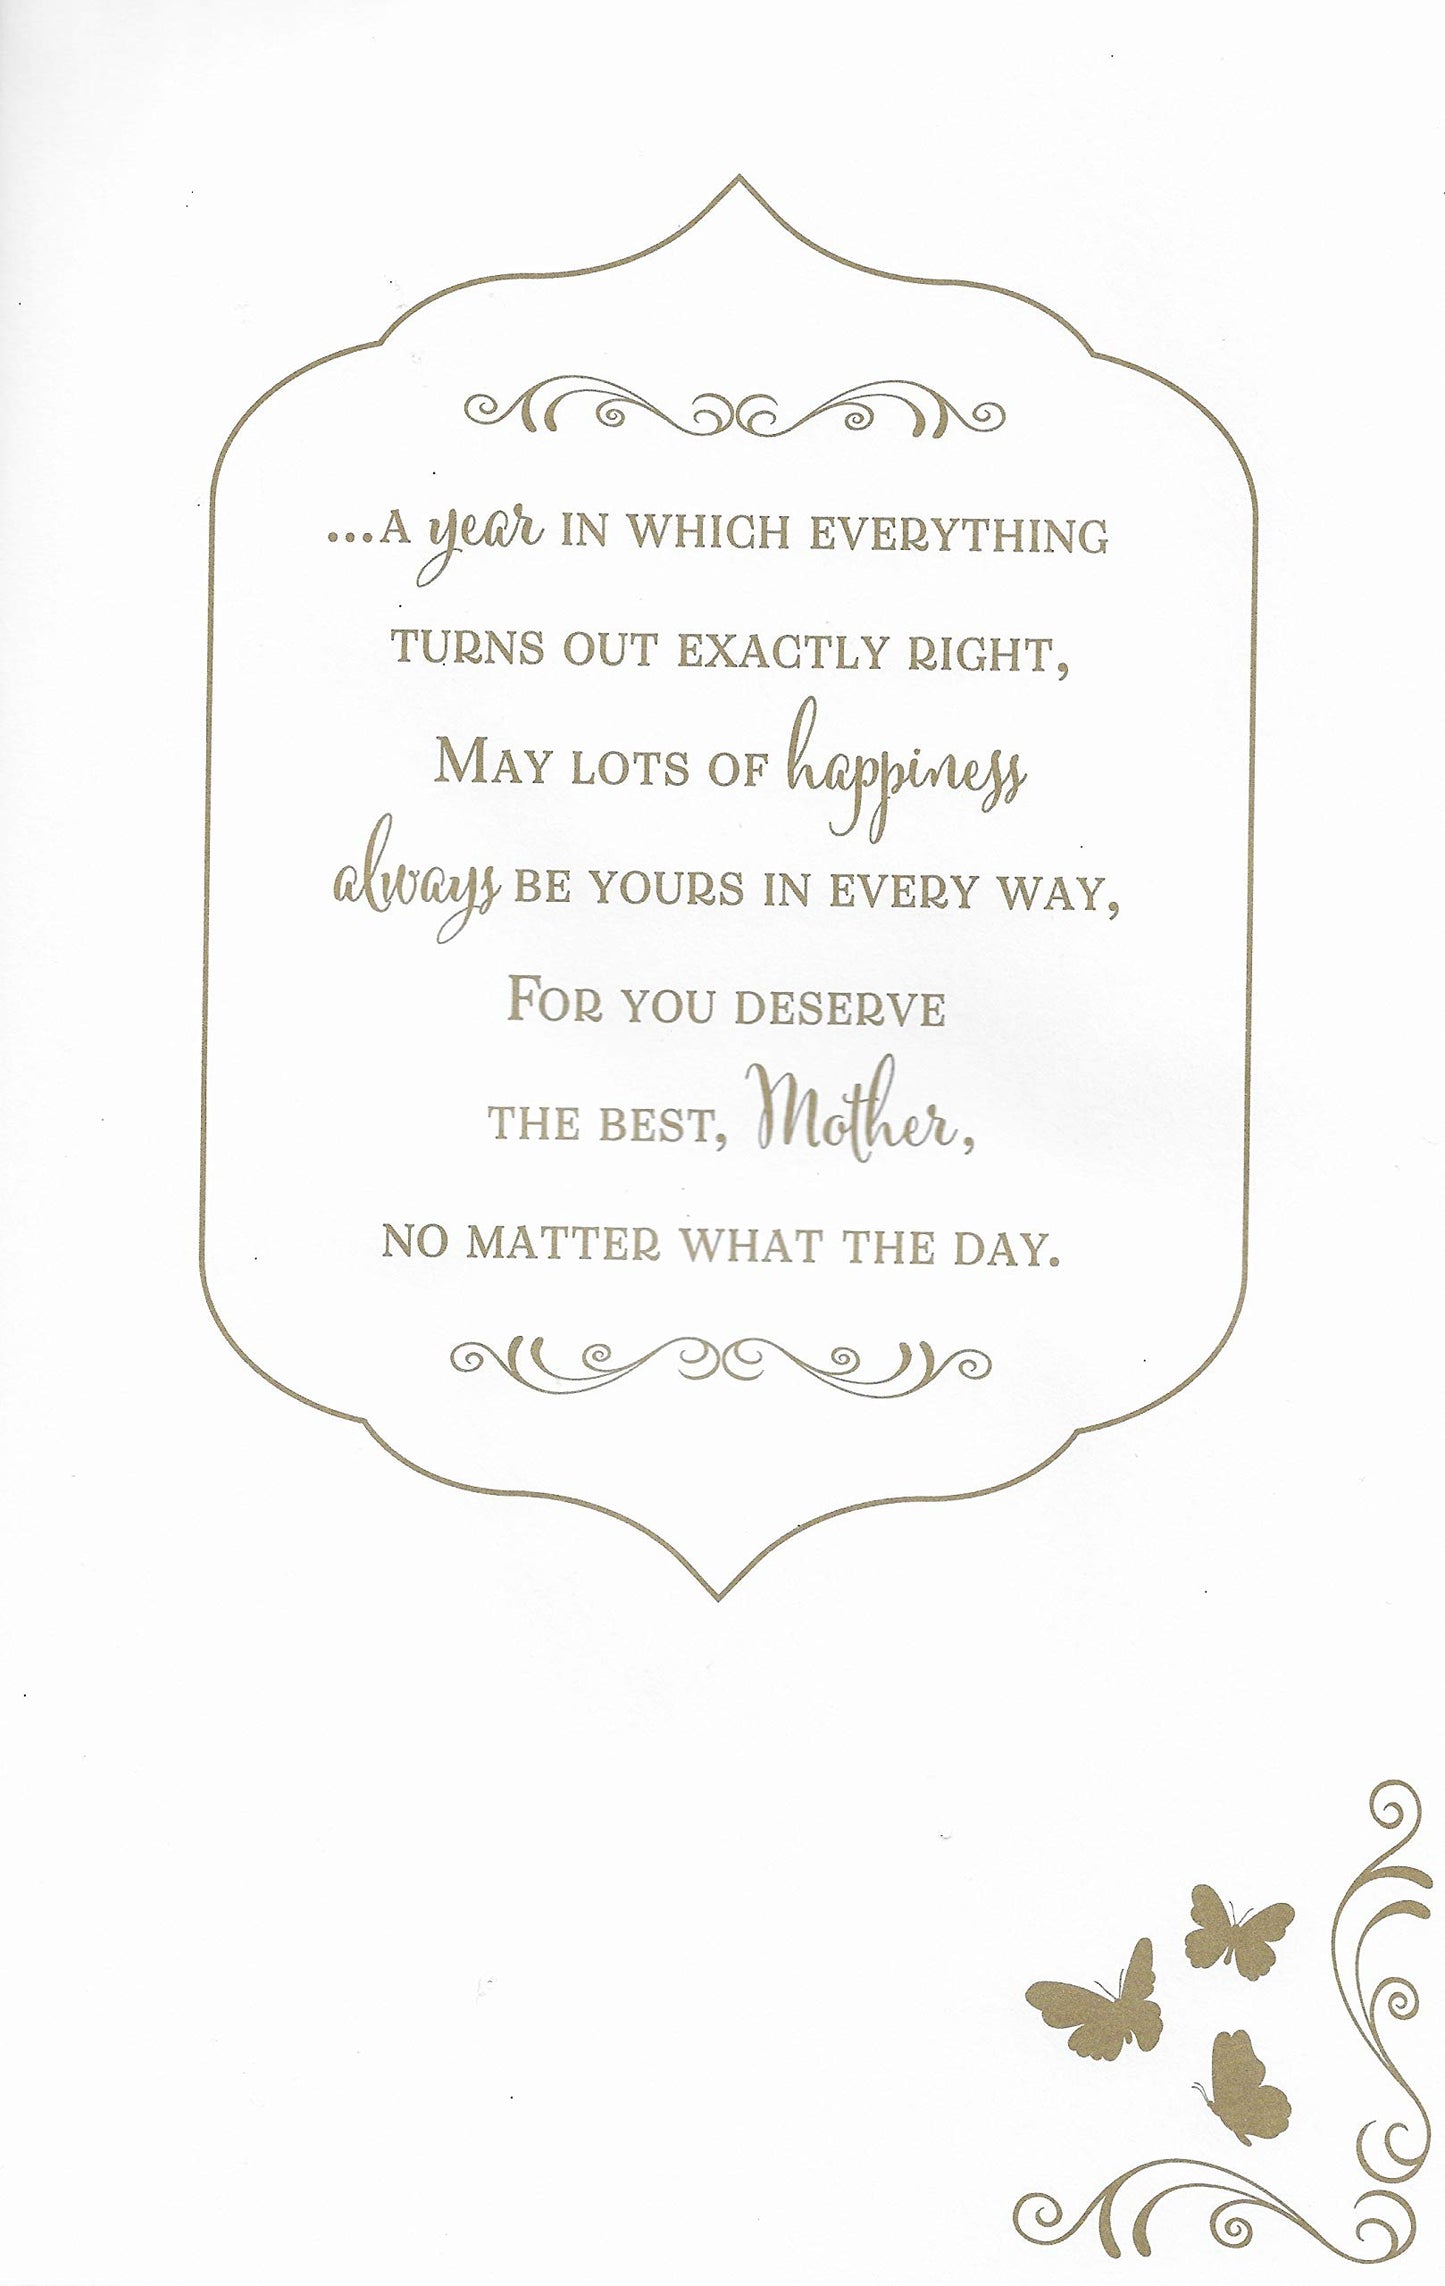 ...A year IN WHICH EVERYTHING
TURNS OUT EXACTLY RIGHT,
MAY LOTS OF happiness
always BE YOURS IN EVERY WAY,
FOR YOU DESERVE
THE BEST, Mother,
NO MATTER WHAT THE DAY.